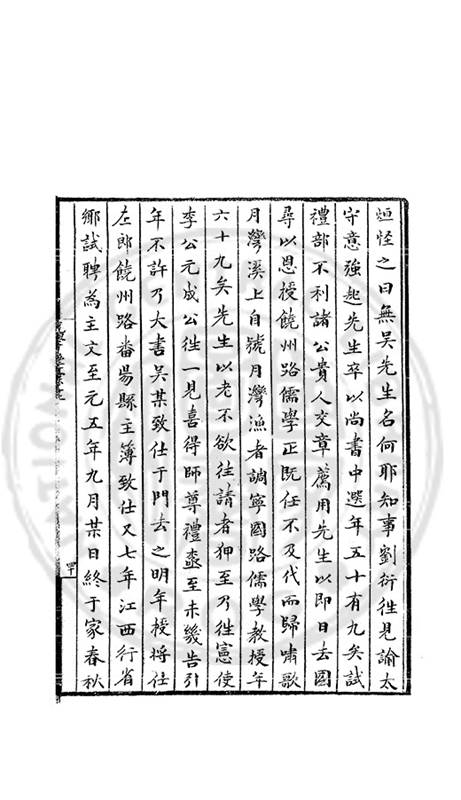 烜怪之曰無吴先生名何耶知事劉衍徃見諭太
守意強起先生卒以尚書中選年五十有九矣試
禮部不利諸公貴人交章薦用先生以即日去國
尋以恩授饒州路儒學正既任不及代而歸嘯歌
月灣溪上自號月灣漁者調寧國路儒學教授年
六十九矣先生以老不欲徃請者狎至乃徃憲使
李公元成公徃一見喜得師尊禮臺至未幾告引
年不許乃大書吴某致仕于門去之明年授將仕
左郎饒州路番昜縣主簿致仕又七年江西行省
鄉試聘為主文至元五年九月某日終于家春秋
四十